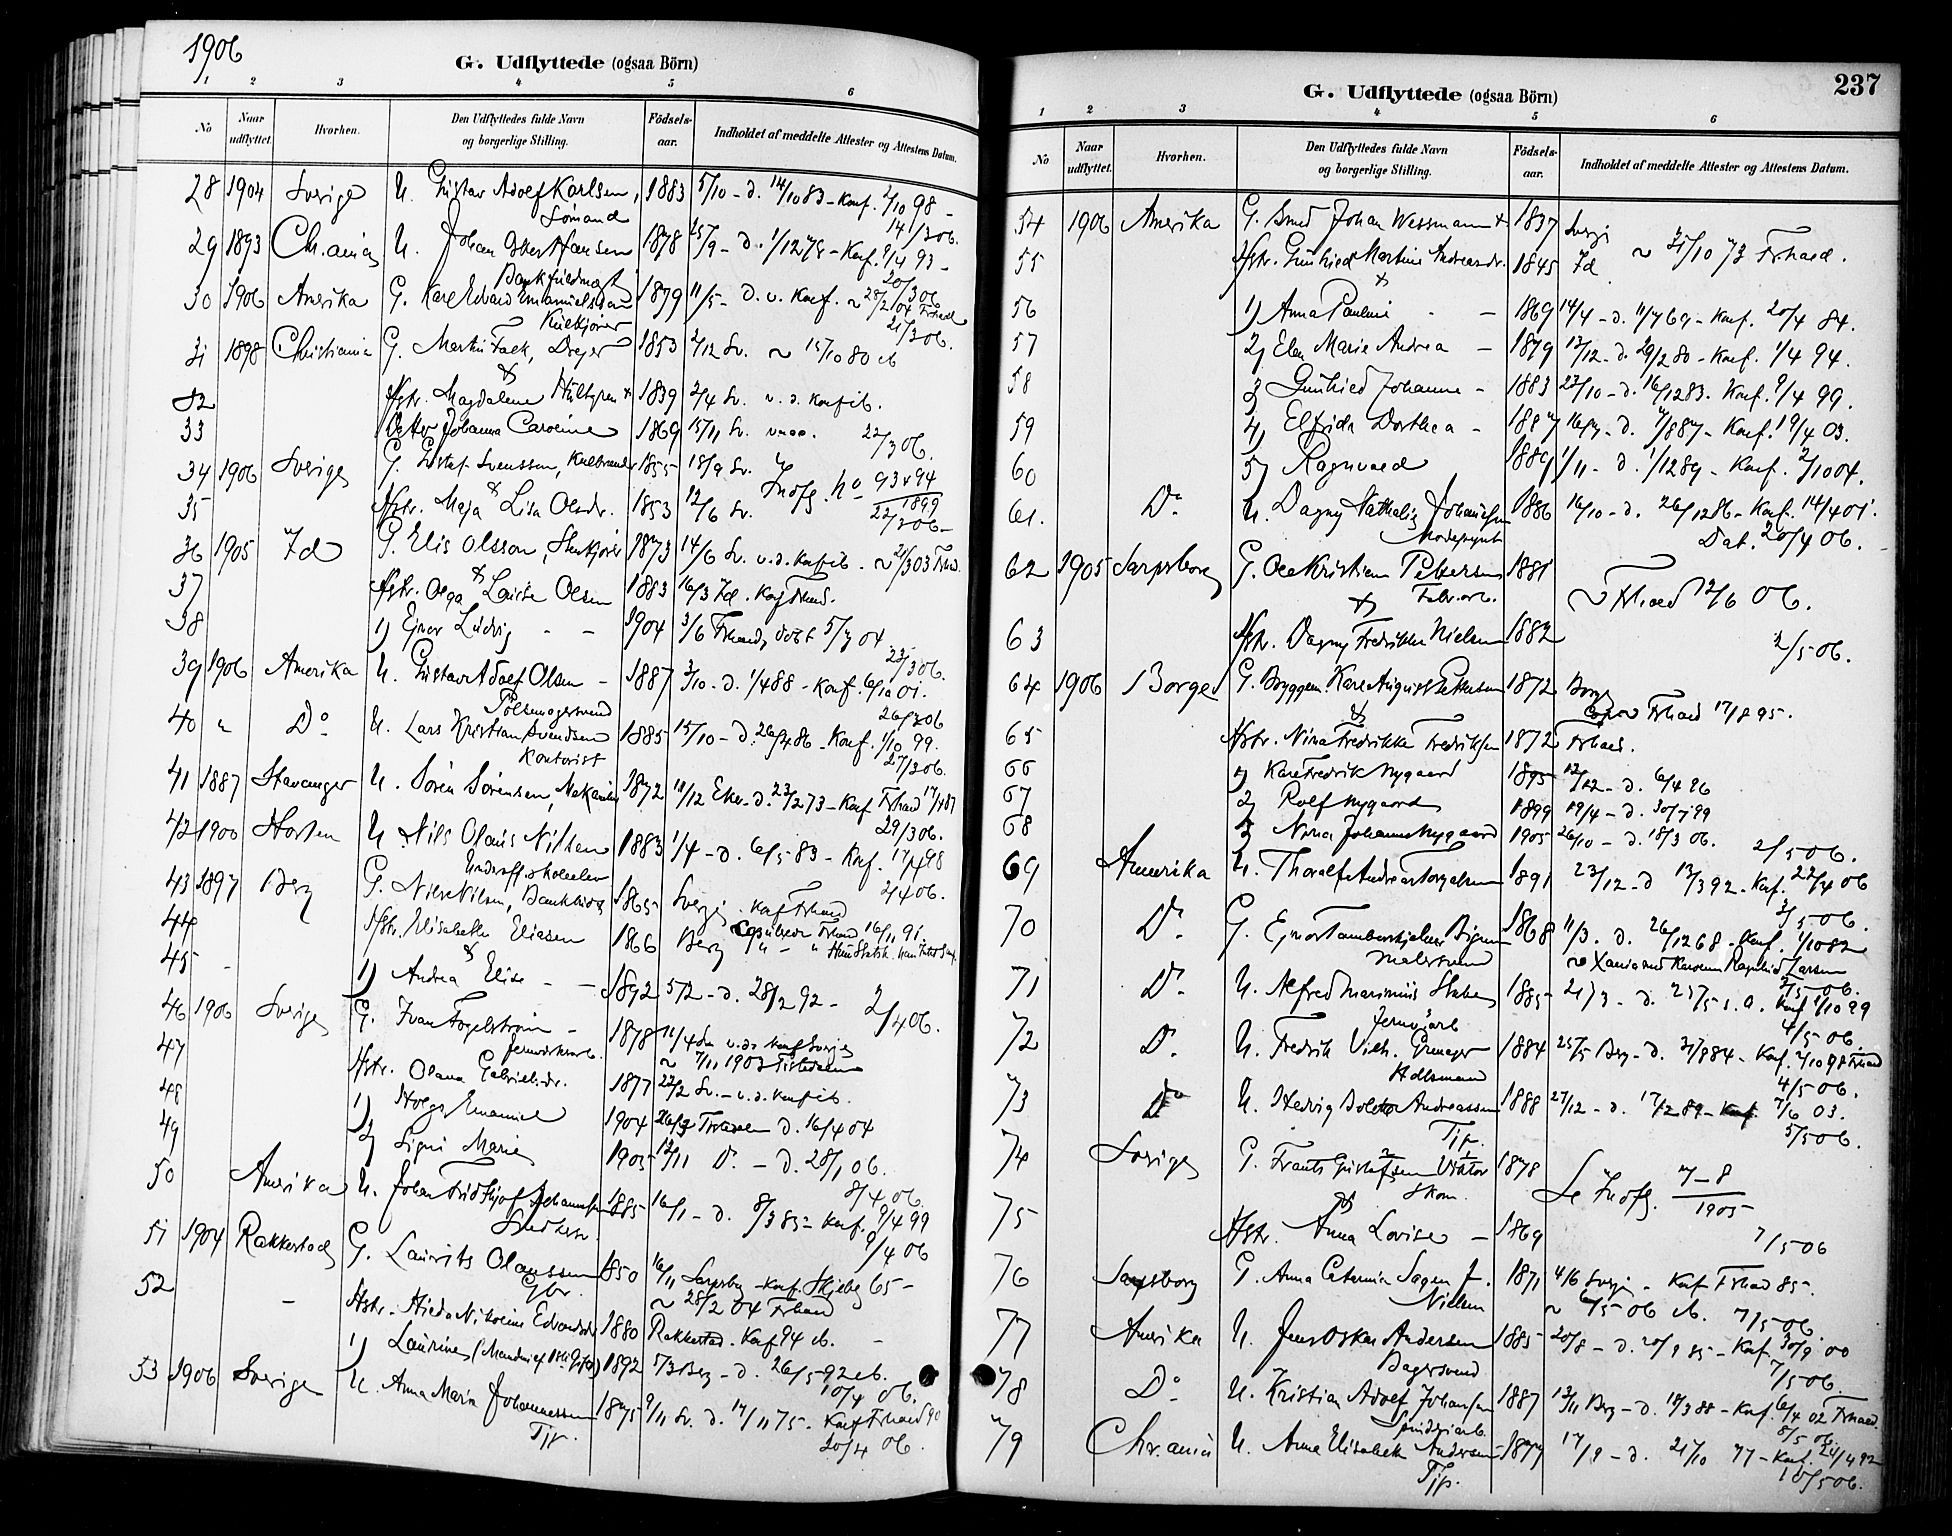 1906
G. Udflyttede (ogsaa Börn)
1 2 3 4 5 6
No
Naar udflyttet.
Hvorhen.
Den Udflyttedes fulde Navn og borgerlige Stilling.
Födsels-aar.
Indholdet af meddelte Attester og Attestens Datum.
28 1904 Sverige U. Gustav Adolf Karlsen, 1883 5/10 - d. 14/10 83 - Konf. 2/10 98 -
Sømand 14/3 06.
29 1893 Chr.ania U. Johan Hansen 1878 25/9 - d. 1/12 78 - Konf. 9/4 93 -
20/3 06
30 1906 Amerika G. Karl Edvard Emanuelsson 1879 11/5 - d. v. Konf. ~ 28/2 04 Frhald
Kulkjører 21/3 06.
31 1898 Christiania G. Martin Falk, Drejer 1853 2/12 Sv. ~ 15/10 80 ib
32 Hstr. Magdalene Hultgren + 1839 2/4 Sv. v. d. Konf ib.
33 Datter Johanna Caroline 1869 15/11 Sv. 22/3 06.
34 1906 Sverige G. Gustaf Svensson, 1855 18/9 Sv. Indfl. No 93 & 94
1899
35 Hstr. Maja Lisa Olsdr. 1853 12/6 Sv. 22/3 06 -
36 1905 Id G. Elis Olsson, 1873 14/6 Sv. v. d. Konf ib. ~ 21/3 03 Frhd.
37 Hstr. Olga Lovise Olsen 1883 16/3 Id. Konf Frhd.
38 1) Ejnar Ludvig - - 1904 3/6 Frhald, døbt 5/7 04
23/3 06.
39 1906 Amerika U. Gustav Adolf Olsen - 1887 3/10 - d. 1/4 88 - Konf. 6/10 01.
Pølsemagersvend 26/3 06
40 " Do U. Lars Kristian Svendsen 1885 15/10 - d. 26/4 86 - Konf. 1/10 99.
Kontorist 27/3 06.
41 1887 Stavanger U. Sören Sörensen, 1872 18/12 Eker - d. 23/2 73 - Konf Frhald 17/4 87
29/3 06.
42 1900 Horten U. Nils Olaus Nilsen 1883 1/4 - d. 6/5 83 - Konf. 17/4 98
Underoff.skoleelev 2/4 06.
43 1897 Berg G. Nils Nilsen, 1865 Sverige. Konf Frhald
44 Hstr. Elisabeth Eliasen 1866 Berg Frhald 16/11 91.
45 - 1) Andrea Elise - - 1892 5/2 - d. 28/2 92 - 2/4 06.
46 1906 Sverige G. Ivan Fogelström - 1878 11/4 Sv. v. d. Konf Sverige
~ 7/11 1903 Tistedalen
47 Hstr. Olava Gabrielsdr. 1877 22/2 Sv. - v. d. Konf ib.
48 1) Holge Emanuel 1904 d. 16/4 04
49 2) Signe Marie 1905 12/11 Do - d. 28/1 06.
8/4 06.
50 Amerika U. Johan Fridthjof Johannsen 1885 16/1 - d. 8/3 85 - Konf. 9/4 99
9/4 06
51 1904 Rakkestad G. Laurits Olaussen 1850 16/11 Sarpsborg - Konf. Skjeberg 65 -
Gbr. ~ 28/2 04 Frhald
52 - Hstr. Hilda Nikoline Edvardsdr. 1880 Rakkestad. Konf 94 ib. -
1) Laurine 1892 5/3 Berg - d. 26/5 92 ib.
10/4 06.
53 1906 Sverige U. Anna Maria Johannessen 1875 9/11 Sv. d. 14/11 75 - Konf Frhald 90
Tjp. 20/4 06.
237
G. Udflyttede (ogsaa Börn)
1 2 3 4 5 6
No
Naar udflyttet.
Hvorhen.
Den Udflyttedes fulde Navn og borgerlige Stilling.
Födsels-aar.
Indholdet af meddelte Attester og Attestens Datum.
54 1906 Amerika G. Smed Johan Wessmann + 1837 Sverige
~ 31/10 73 Frhald.
55 Hstr. Gunhild Martine Andreasdr. 1845 Id
56 1) Anna Pauline - - 1869 14/4 - d. 11/7 69 - Konf. 20/4 84.
57 2) Elen Marie Andrea - 1879 12/12 - d. 29/2 80 - Konf. 1/4 94.
58 3) Gunhild Johanne - 1883 22/10 - d. 16/12 83. Konf. 9/4 99.
59 4) Elfrida Dorthea - 1887 16/7 - d. 7/8 87 - Konf. 19/4 03.
60 5) Ragnvald 1889 1/11 - d. 1/12 89 - Konf. 2/10 04.
61. Do U. Dagny Nathalia Johansen 1886 16/10 - d. 26/12 86 - Konf. 14/4 01.
Dat. 20/4 06.
62 1905 Sarpsborg G. Ole Kristian Pettersen 1881
Fabr.arb. ~ Frhald 12/6 06.
63 Hstr. Dagny Fredrikke Nielsen 1882
2/5 06.
64 1906 Borge G. Bryggem. Karl August Pettersen 1872 Borge
Frhald 17/8 95.
65 Hstr. Nina Fredrikke Fredriksen 1872 Frhald.
66 1) Karl Fredrik Nygaard 1895 12/12 - d. 6/4 96
67 2) Rolf Nygaard 1899 19/4 - d. 30/7 99
68 3) Nina Johanne Nygaard 1905 26/10 - d. 18/3 06.
2/5 06.
69 Amerika U. Thoralf Andreas Torgersen 1891 23/12 - d 13/3 92 - Konf. 22/4 06
3/5 06.
70 Do G. Ejnar 1868 11/3. d. 26/12 68 - Konf. 1/10 82
Malersvend ~ Xania med Karoline Ragnhild Larsen
2/5 06.
71 Do U. Alfred Marinius 1885 21/3 - d. 25/5 s. A. Konf 1/10 99
4/5 06.
72 Do U. Fredrik Vilh. 1884 25/5 Berg - d. 31/8 84 - Konf. 2/10 98 Frhald
4/5 06.
73 Do U. Hedvig Andreassen 1888 27/12 - d. 17/2 89 - Konf 7/6 03.
Tjp. 5/5 06.
74 Sverige G. Frants Gustafsen Viktor 1878 Se Indfl. 7-8
Skom. 1905
75 Hstr. Anna Lovise - 1869
7/5 06
76 Sarpsborg G. Anna Caterina Sagen f. 1871 4/6 Sverige - Konf Frhald 85 -
Nielsen ~ 6/5 06 ib. 7/5 06.
77 Amerika U. Jens Oskar Andersen 1885 20/8 - d. 20/9 85 - Konf. 30/9 00
Bagersvend 7/5 06
78 Do U. Kristian Adolf Johansen 1887 13/11 Berg - d. 18/3 88 - Konf. 6/4 02 Frhald.
Spinderiarb. 8/5 06.
79 Chr.ania U. Anna Elisabeth Andersen 1877 17/9 - d. 21/10 77 - Konf. 24/4 92
Tjp. 10/5 06.